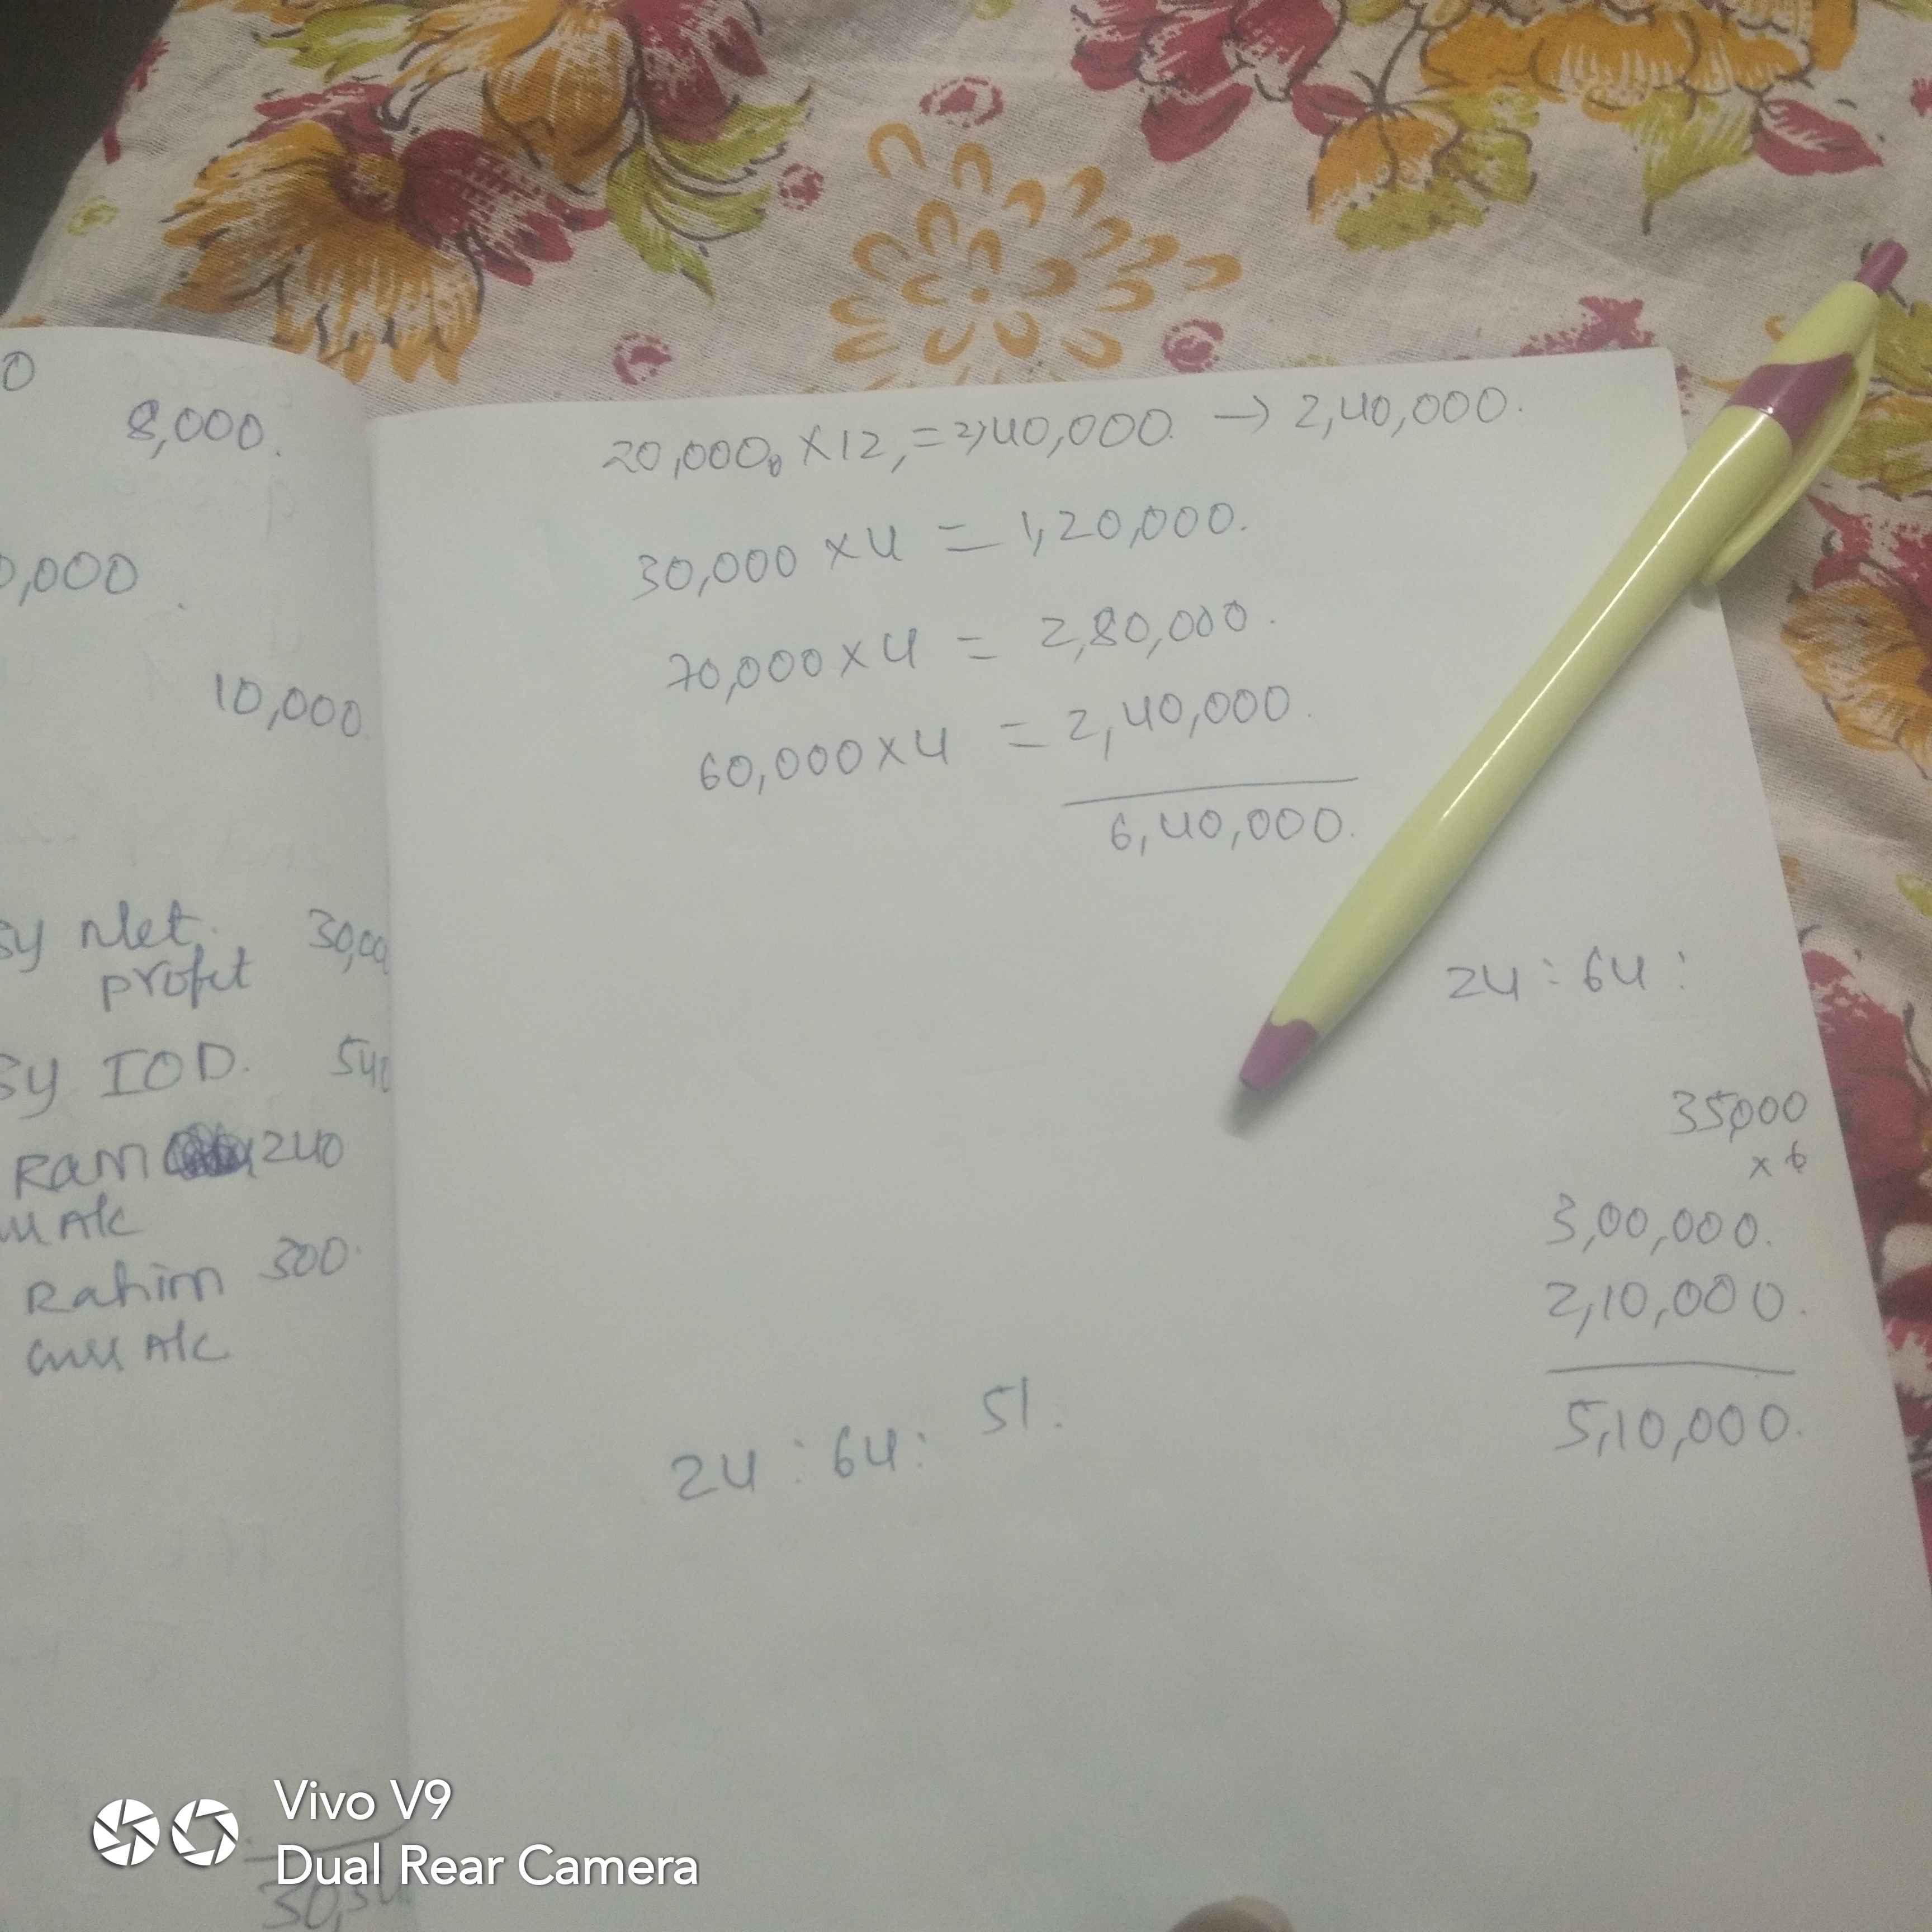 0
8,000.
0,000
10,000
By Net
profit 30,00
By IOD. 540
Ram 240
A/c
Rahim 300
A/c
20,000 X12, =2,40,000. → 2,40,000.
30,000 x4 = 1,20,000.
70,000 x4 = 2,80,000.
60,000 x4 = 2,40,000.
6,40,000.
24:64:
35,000
x6
3,00,000.
2,10,000.
5,10,000.
24:64: 51.
Vivo V9
Dual Rear Camera